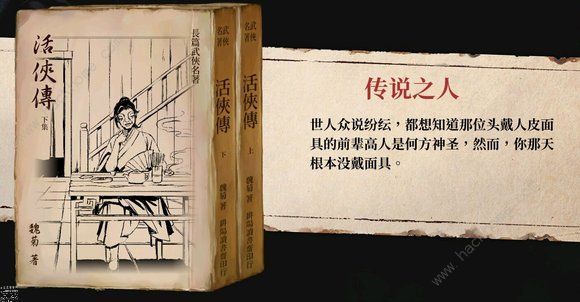 長篇武俠名著
活俠傳
下集
魏菊 著
武俠名著
活俠傳
下
魏菊 著
武俠名著
活俠傳
上
魏菊 著
传说之人
世人众说纷纭，都想知道那位头戴人皮面
具的前辈高人是何方神圣，然而，你那天
根本没戴面具。